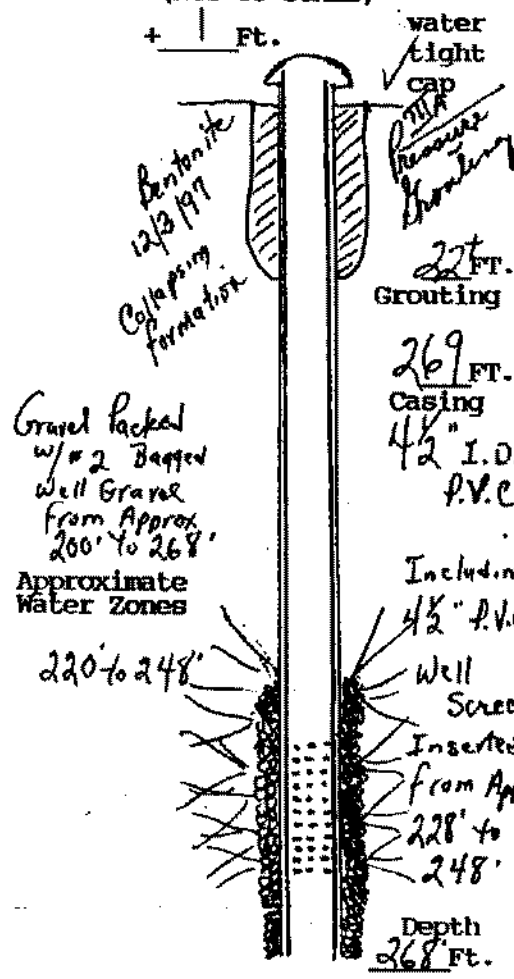 + 1 Ft.
water
tight
cap
IIIA
Pressure
Grouting
Bentonite
12/3/97
Collapsing
formation
22+ FT.
Grouting
269 FT.
Casing
4½" I.D
P.V.C
Gravel Packed
w/ #2 Bagged
Well Gravel
From Approx
200' To 268'
Approximate
Water Zones
220' to 248'
Includin
4½" P.V.
Well
Scree
Inserted
from Ap
228' to
248'
Depth
268' Ft.